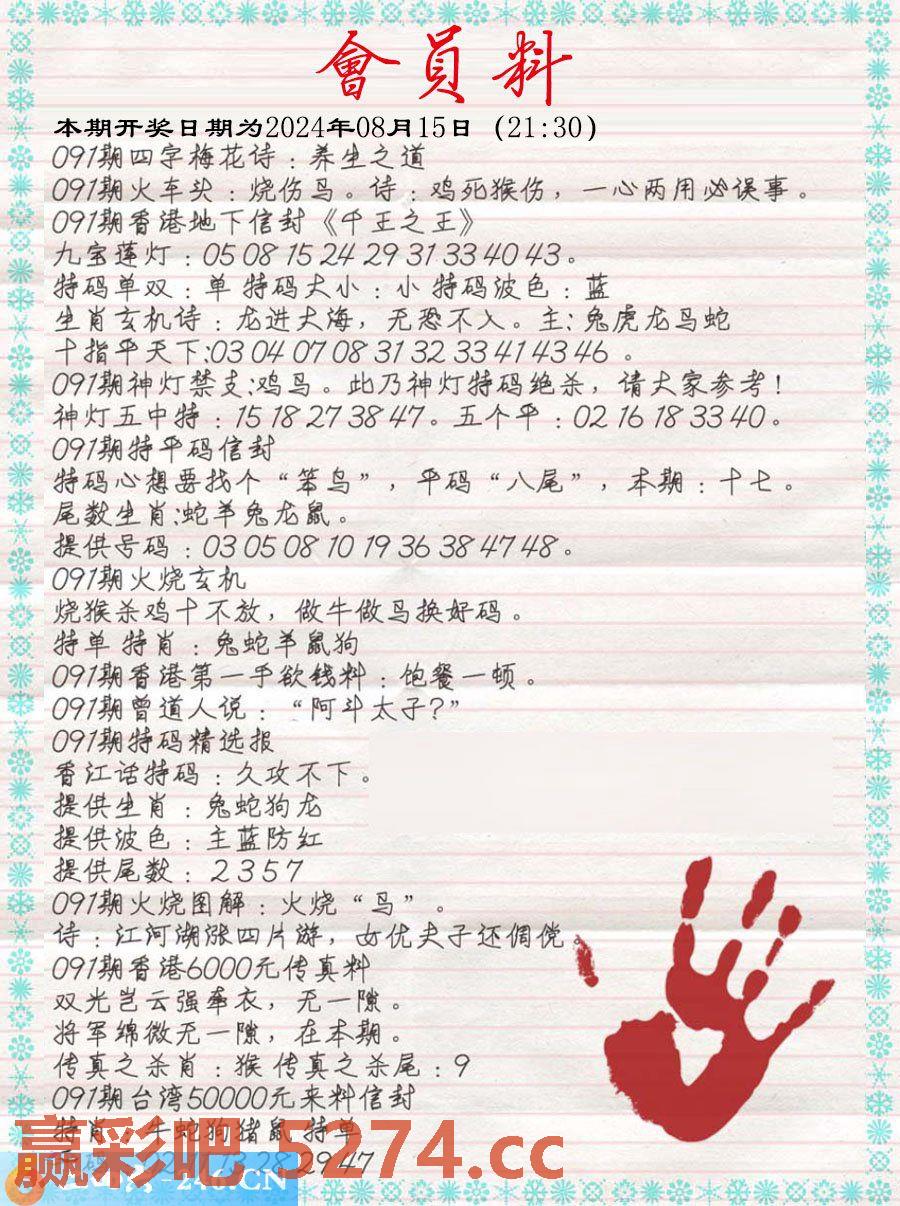 會員料
本期开奖日期为2024年08月15日（21:30）
091期四字梅花诗：养生之道
091期火车头：烧伤鸟。诗：鸡死猴伤，一心两用必误事。
091期香港地下信封《千王之王》
九宝莲灯：05 08 15 24 29 31 33 40 43。
特码单双：单 特码大小：小 特码波色：蓝
生肖玄机诗：龙进大海，无恐不入。主：兔虎龙鸟蛇
十指平天下:03 04 07 08 31 32 33 41 43 46 。
091期神灯禁支:鸡鸟。此乃神灯特码绝杀，请大家参考！
神灯五中特：15 18 27 38 47。五个平：02 16 18 33 40。
091期特平码信封
特码心想要找个“笨鸟”，平码“八尾”，本期：十七。
尾数生肖:蛇羊兔龙鼠。
提供号码：03 05 08 10 19 36 38 47 48。
091期火烧玄机
烧猴杀鸡十不放，做牛做鸟换好码。
特单 特肖：兔蛇羊鼠狗
091期香港第一手欲钱料：饱餐一顿。
091期曾道人说：“阿斗太子?”
091期特码精选报
香江话特码：久攻不下。
提供生肖：兔蛇狗龙
提供波色：主蓝防红
提供尾数：2 3 5 7
091期火烧图解：火烧“鸟”。
诗：江河湖涨四片游，女优夫子还倜傥。
091期香港6000元传真料
双光岂云强牵衣，无一隙。
将军绵微无一隙，在本期。
传真之杀肖：猴 传真之杀尾：9
091期台湾50000元来料信封
特肖：牛蛇狗猪鼠 特单
赢彩吧-5274.cc
28 29 47
-246.CN